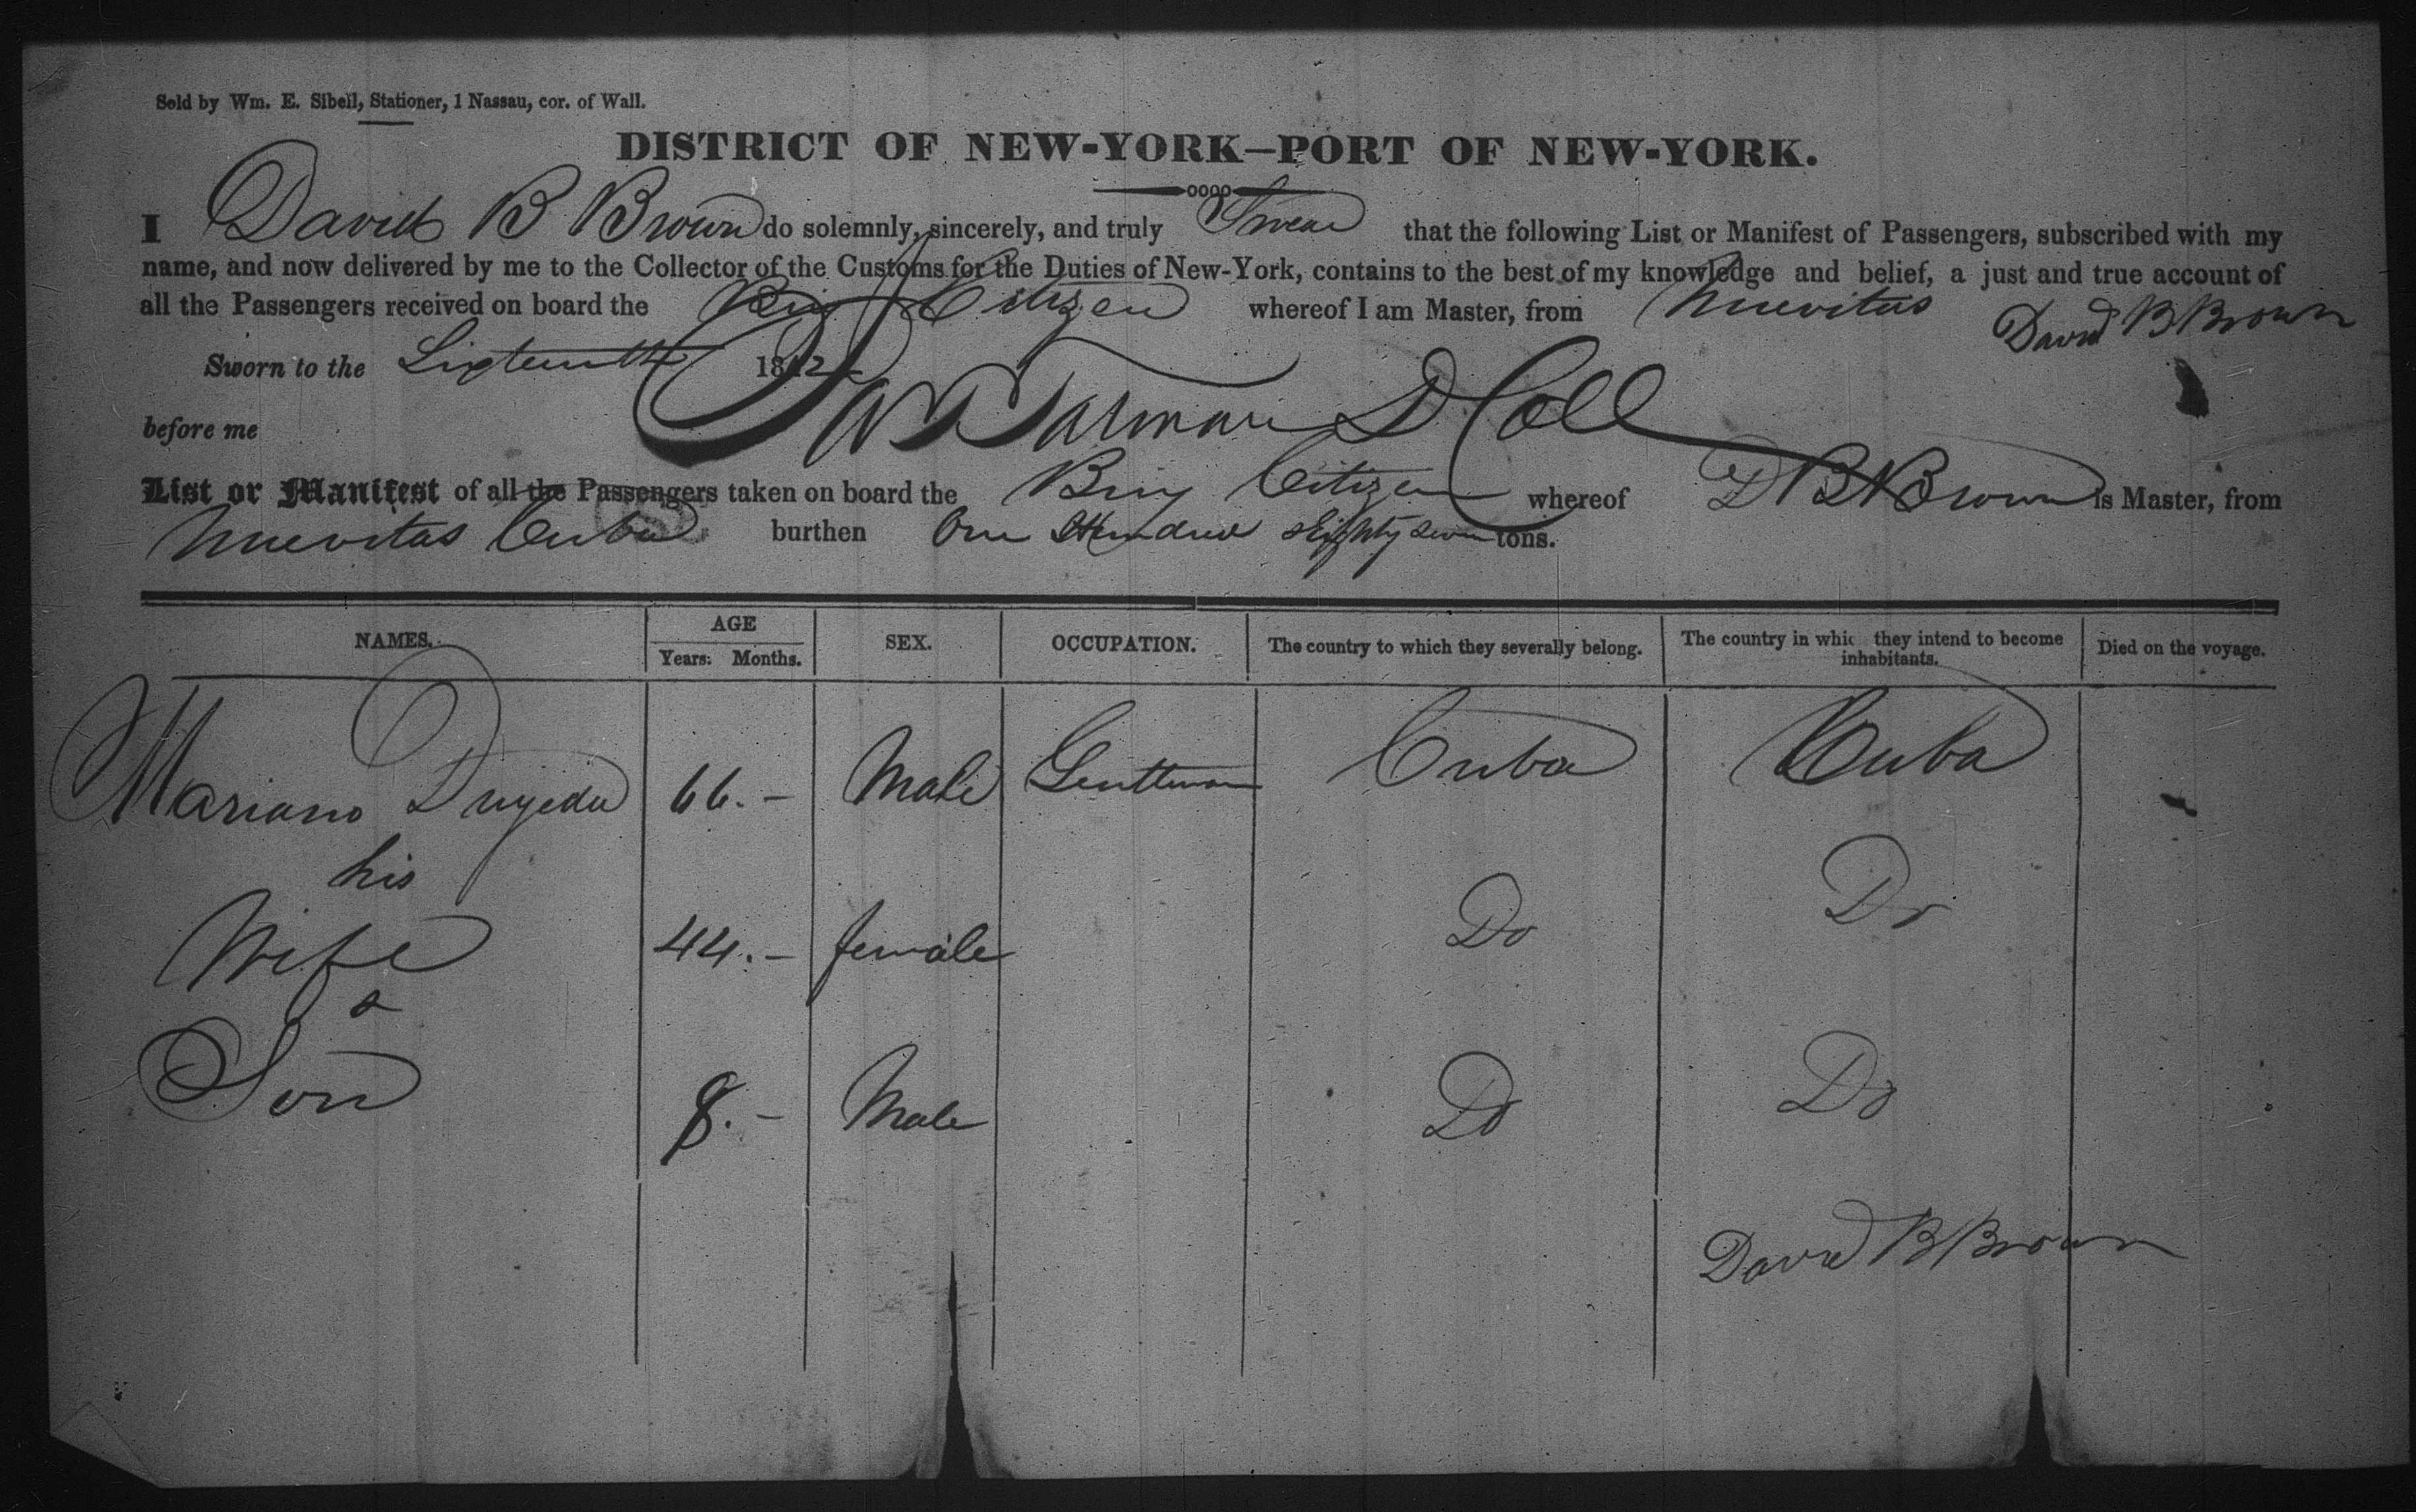 Sold by Wm. E. Sibell, Stationer, 1 Nassau, cor. of Wall.
DISTRICT OF NEW-YORK—PORT OF NEW-YORK.
I David B Brown do solemnly, sincerely, and truly Swear that the following List or Manifest of Passengers, subscribed with my
name, and now delivered by me to the Collector of the Customs for the Duties of New-York, contains to the best of my knowledge and belief, a just and true account of
all the Passengers received on board the Brig Citizen whereof I am Master, from Nuevitas David B Brown
Sworn to the Sixteenth 1842
before me D Coll
List or Manifest of all the Passengers taken on board the Brig Citizen whereof D B Brown is Master, from
Nuevitas Cuba burthen One Hundred Eighty Seven tons.
NAMES. AGE Years. Months. SEX. OCCUPATION. The country to which they severally belong. The country in whic they intend to become inhabitants. Died on the voyage.
Mariano 66. – Male Gentleman Cuba Cuba
his
Wife 44. – female Do Do
&
Son 8. – Male Do Do
David B Brown